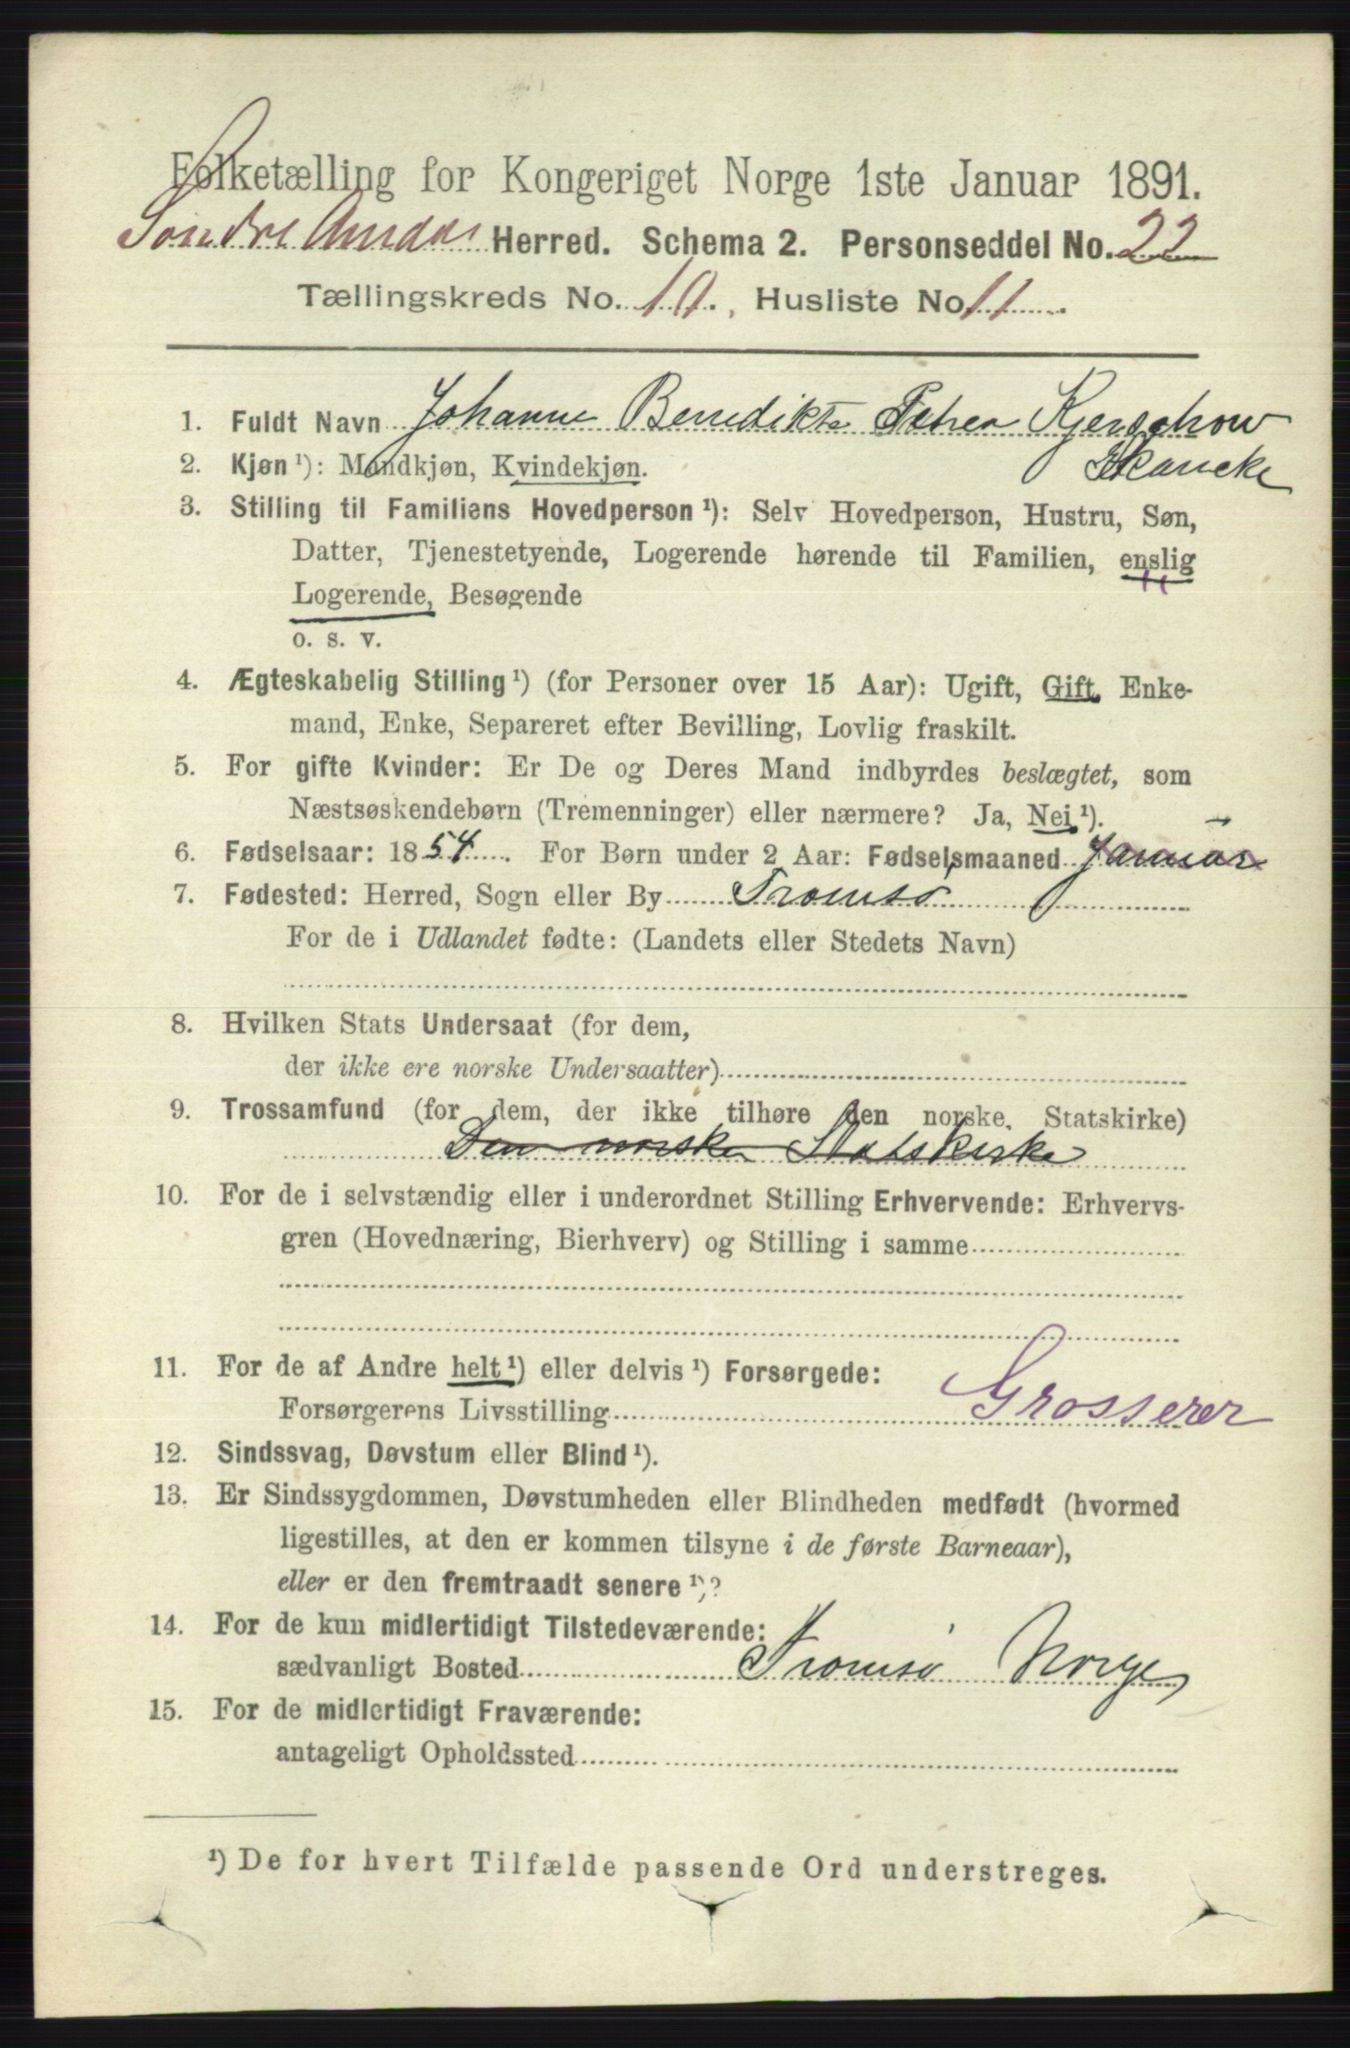 Folketælling for Kongeriget Norge 1ste Januar 1891.
Søndre Aurdal Herred. Schema 2. Personseddel No. 22
Tællingskreds No. 10., Husliste No 11.
1. Fuldt Navn Johanne Benedikte Petrea Kjerschow
Skancke
2. Kjøn ¹): Mandkjøn, Kvindekjøn.
3. Stilling til Familiens Hovedperson ¹): Selv Hovedperson, Hustru, Søn,
Datter, Tjenestetyende, Logerende hørende til Familien, enslig
Logerende, Besøgende
o. s. v.
4. Ægteskabelig Stilling ¹) (for Personer over 15 Aar): Ugift, Gift, Enke-
mand, Enke, Separeret efter Bevilling, Lovlig fraskilt.
5. For gifte Kvinder: Er De og Deres Mand indbyrdes beslægtet, som
Næstsøskendebørn (Tremenninger) eller nærmere? Ja, Nei ¹).
6. Fødselsaar: 1854. For Børn under 2 Aar: Fødselsmaaned Januar
7. Fødested: Herred, Sogn eller By Tromsø
For de i Udlandet fødte: (Landets eller Stedets Navn)
8. Hvilken Stats Undersaat (for dem,
der ikke ere norske Undersaatter)
9. Trossamfund (for dem, der ikke tilhøre den norske Statskirke)
Den norske Statskirke
10. For de i selvstændig eller i underordnet Stilling Erhvervende: Erhvervs-
gren (Hovednæring, Bierhverv) og Stilling i samme
11. For de af Andre helt ¹) eller delvis ¹) Forsørgede:
Forsørgerens Livsstilling Grosserer
12. Sindssvag, Døvstum eller Blind ¹).
13. Er Sindssygdommen, Døvstumheden eller Blindheden medfødt (hvormed
ligestilles, at den er kommen tilsyne i de første Barneaar),
eller er den fremtraadt senere ¹)?
14. For de kun midlertidigt Tilstedeværende:
sædvanligt Bosted Tromsø Norge
15. For de midlertidigt Fraværende:
antageligt Opholdssted
¹) De for hvert Tilfælde passende Ord understreges.